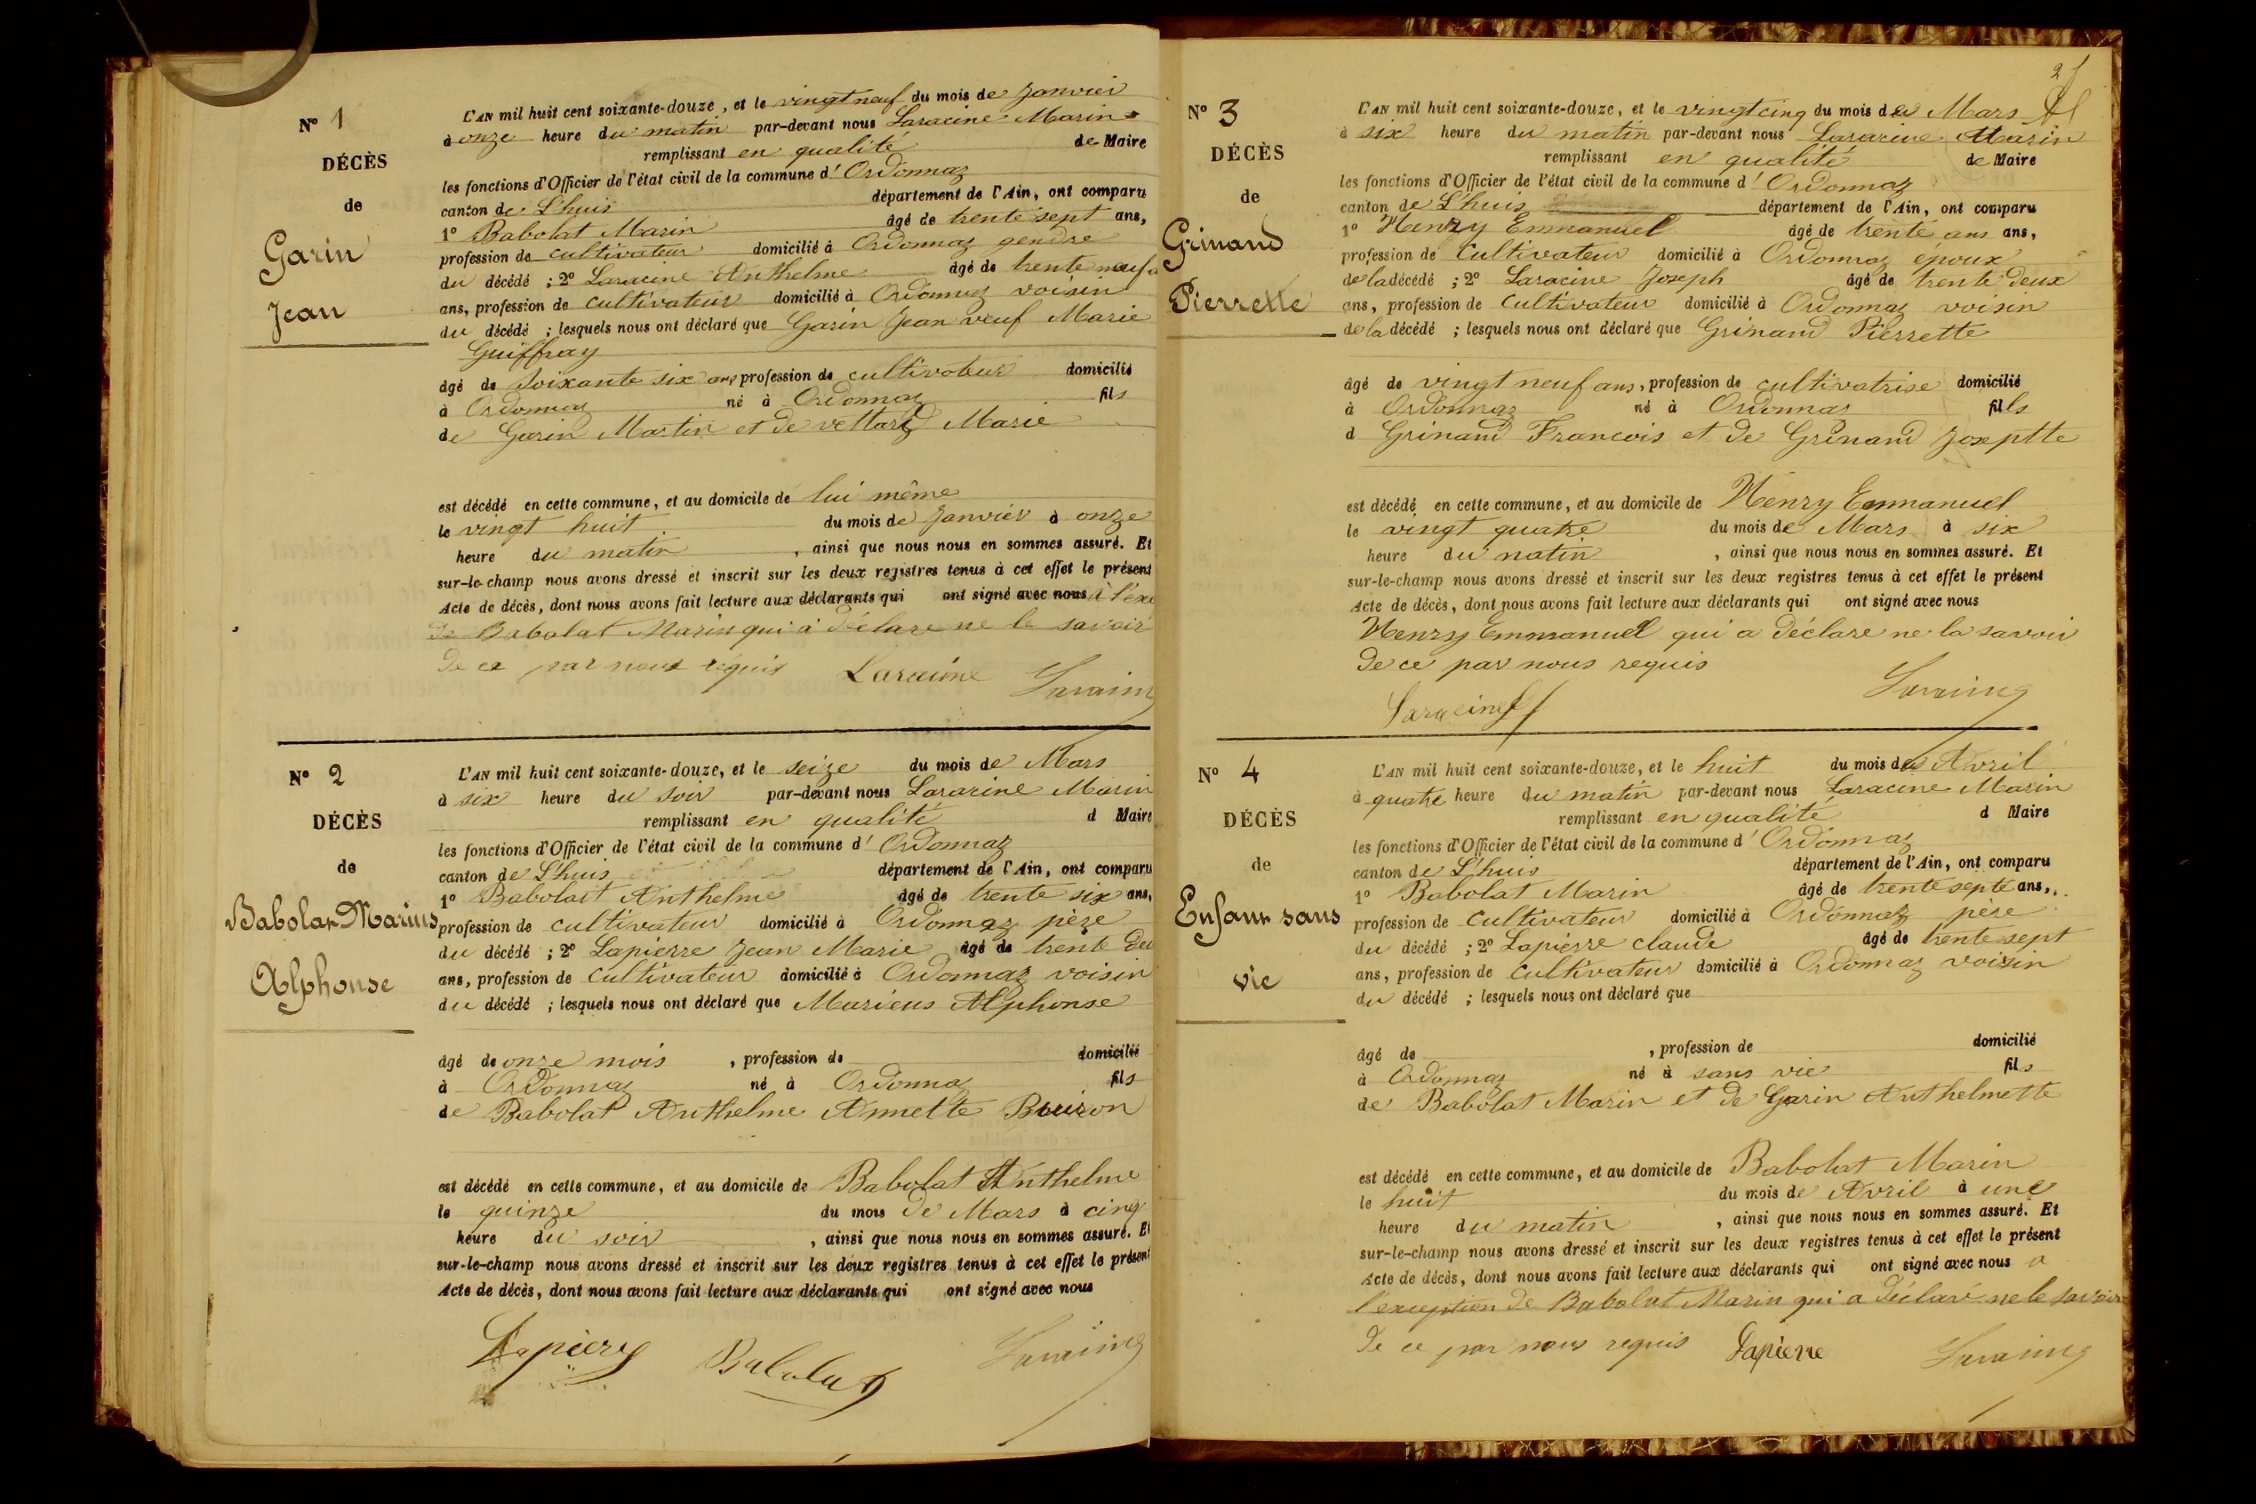 N° 1
DÉCÈS
de
Garin
Jean
L'AN mil huit cent soixante-douze, et le vingt neuf du mois de Janvier
à onze heure du matin par-devant nous Laracine Marin
remplissant en qualité de Maire
les fonctions d'Officier de l'état civil de la commune d' Ordonnaz
canton de L'huis département de l'Ain, ont comparu
1° Babolat Marin âgé de trente sept ans,
profession de cultivateur domicilié à Ordonnaz gendre
du décédé ; 2° Laracine Anthelme âgé de trente neuf
ans, profession de cultivateur domicilié à Ordonnaz voisin
du décédé ; lesquels nous ont déclaré que Garin Jean veuf Marie
Guiffray
âgé de Soixante six ans profession de cultivateur domicilié
à Ordonnaz né à Ordonnaz fils
de Garin Martin et de vettard Marie
est décédé en cette commune, et au domicile de lui même
le vingt huit du mois de Janvier à onze
heure du matin , ainsi que nous nous en sommes assuré. Et
sur-le-champ nous avons dressé et inscrit sur les deux registres tenus à cet effet le présent
Acte de décès, dont nous avons fait lecture aux déclarants qui ont signé avec nous à l'exe
de Babolat Marin qui a déclare ne le savoir
de ce par nous requis Laracine Laracine
N° 2
DÉCÈS
de
Babolat Marius
Alphonse
L'AN mil huit cent soixante-douze, et le seize du mois de Mars
à six heure du soir par-devant nous Laracine Marin
remplissant en qualité d Maire
les fonctions d'Officier de l'état civil de la commune d' Ordonnaz
canton de L'huis département de l'Ain, ont comparu
1° Babolat Anthelme âgé de trente six ans,
profession de cultivateur domicilié à Ordonnaz père
du décédé ; 2° Lapierre Jean Marie âgé de trente deu
ans, profession de cultivateur domicilié à Ordonnaz voisin
du décédé ; lesquels nous ont déclaré que Marieus Alphonse
âgé de onze mois , profession de domicilié
à Ordonnaz né à Ordonnaz fils
de Babolat Anthelme Annette Buison
est décédé en cette commune, et au domicile de Babolat Anthelme
le quinze du mois de Mars à cinq
heure du soir , ainsi que nous nous en sommes assuré. Et
sur-le-champ nous avons dressé et inscrit sur les deux registres tenus à cet effet le présent
Acte de décès, dont nous avons fait lecture aux déclarants qui ont signé avec nous
Lapierre Babolat Laracine
N° 3
DÉCÈS
de
Grinand
Pierrette
L'AN mil huit cent soixante-douze, et le vingt cinq du mois de Mars
à six heure du matin par-devant nous Laracine Marin
remplissant en qualité de Maire
les fonctions d'Officier de l'état civil de la commune d' Ordonnaz
canton de L'huis département de l'Ain, ont comparu
1° Henry Emmanuel âgé de trente ans ans,
profession de cultivateur domicilié à Ordonnaz époux
de la décédé ; 2° Laracine Joseph âgé de trente deux
ans, profession de cultivateur domicilié à Ordonnaz voisin
de la décédé ; lesquels nous ont déclaré que Grinand Pierrette
âgé de vingt neuf ans, profession de cultivatrise domicilié
à Ordonnaz né à Ordonnaz fils
d Grinand Francois et de Grinand Joseptte
est décédé en cette commune, et au domicile de Henry Emmanuel
le vingt quatre du mois de Mars à six
heure du matin , ainsi que nous nous en sommes assuré. Et
sur-le-champ nous avons dressé et inscrit sur les deux registres tenus à cet effet le présent
Acte de décès, dont nous avons fait lecture aux déclarants qui ont signé avec nous
Henry Emmanuel qui a déclare ne la savoir
de ce par nous requis Laracine
Laracine
N° 4
DÉCÈS
de
Enfant sans
vie
L'AN mil huit cent soixante-douze, et le huit du mois de Avril
à quatre heure du matin par-devant nous Laracine Marin
remplissant en qualité d Maire
les fonctions d'Officier de l'état civil de la commune d' Ordonnaz
canton de L'huis département de l'Ain, ont comparu
1° Babolat Marin âgé de trente septe ans,
profession de cultivateur domicilié à Ordonnaz père
du décédé ; 2° Lapierre claude âgé de trente sept
ans, profession de cultivateur domicilié à Ordonnaz voisin
du décédé ; lesquels nous ont déclaré que
âgé de , profession de domicilié
à Ordonnaz né à sans vie fils
de Babolat Marin et de Garin Anthelmette
est décédé en cette commune, et au domicile de Babolat Marin
le huit du mois de Avril à une
heure du matin , ainsi que nous nous en sommes assuré. Et
sur-le-champ nous avons dressé et inscrit sur les deux registres tenus à cet effet le présent
Acte de décès, dont nous avons fait lecture aux déclarants qui ont signé avec nous a
l'exception de Babolat Marin qui a déclaré ne le savoir
de ce par nous requis Lapierre Laracine